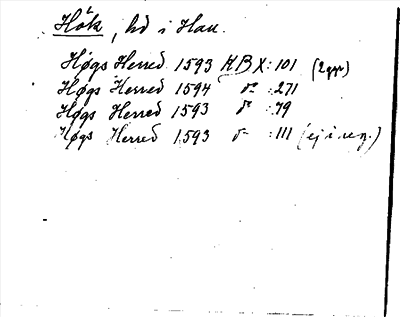 Hök, hd i Hall.
Høgs Herred 1593 KB X: 101 (2ggr)
Høgs Herred 1594 do :271
Høgs Herred 1593 do :79
Høgs Herred 1593 do :111 (ej i reg.)